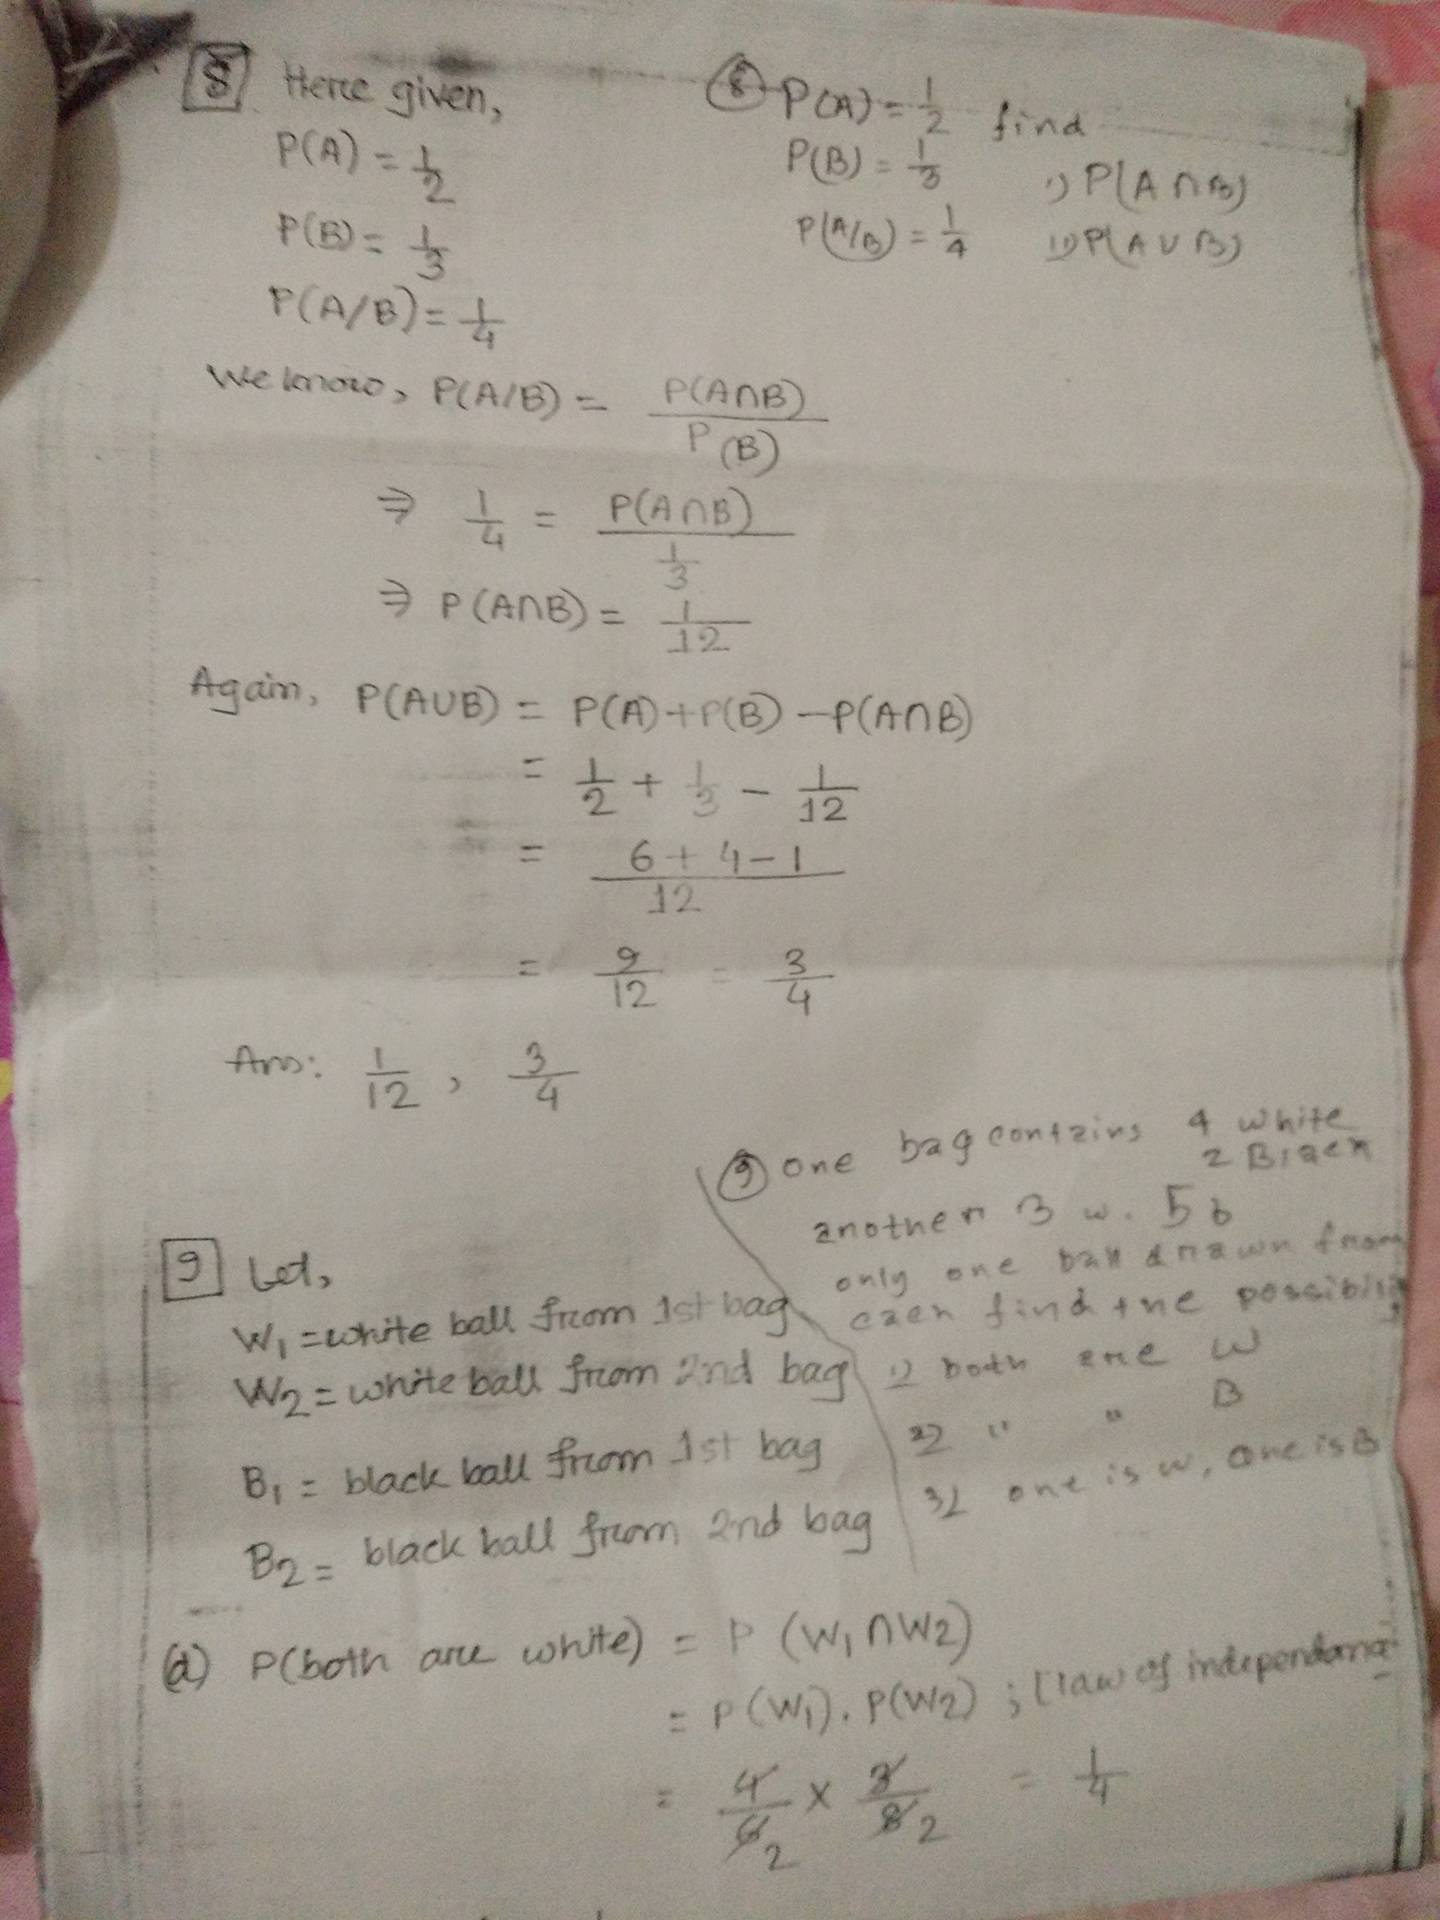 8 Here given,
P(A) = 1/2
P(B) = 1/3
P(A/B) = 1/4
8 P(A) = 1/2 find
P(B) = 1/3 i) P(A∩B)
P(A/B) = 1/4 ii) P(A∪B)
We know, P(A/B) = P(A∩B) / P(B)
⇒ 1/4 = P(A∩B) / 1/3
⇒ P(A∩B) = 1/12
Again, P(A∪B) = P(A)+P(B) -P(A∩B)
= 1/2 + 1/3 - 1/12
= 6+4-1 / 12
= 9/12 = 3/4
Ans: 1/12 , 3/4
9 one bag contains 4 white
2 Black
another 3 w. 5 b
only one ball drawn from
each find the possibility
1) both are W
2) " " B
3) one is w, one is B
9 Let,
W1 = white ball from 1st bag
W2 = white ball from 2nd bag
B1 = black ball from 1st bag
B2 = black ball from 2nd bag
(a) P(both are white) = P (W1 ∩ W2)
= P(W1). P(W2) ; [law of
= 4/6 2 × 3/8 2 = 1/4